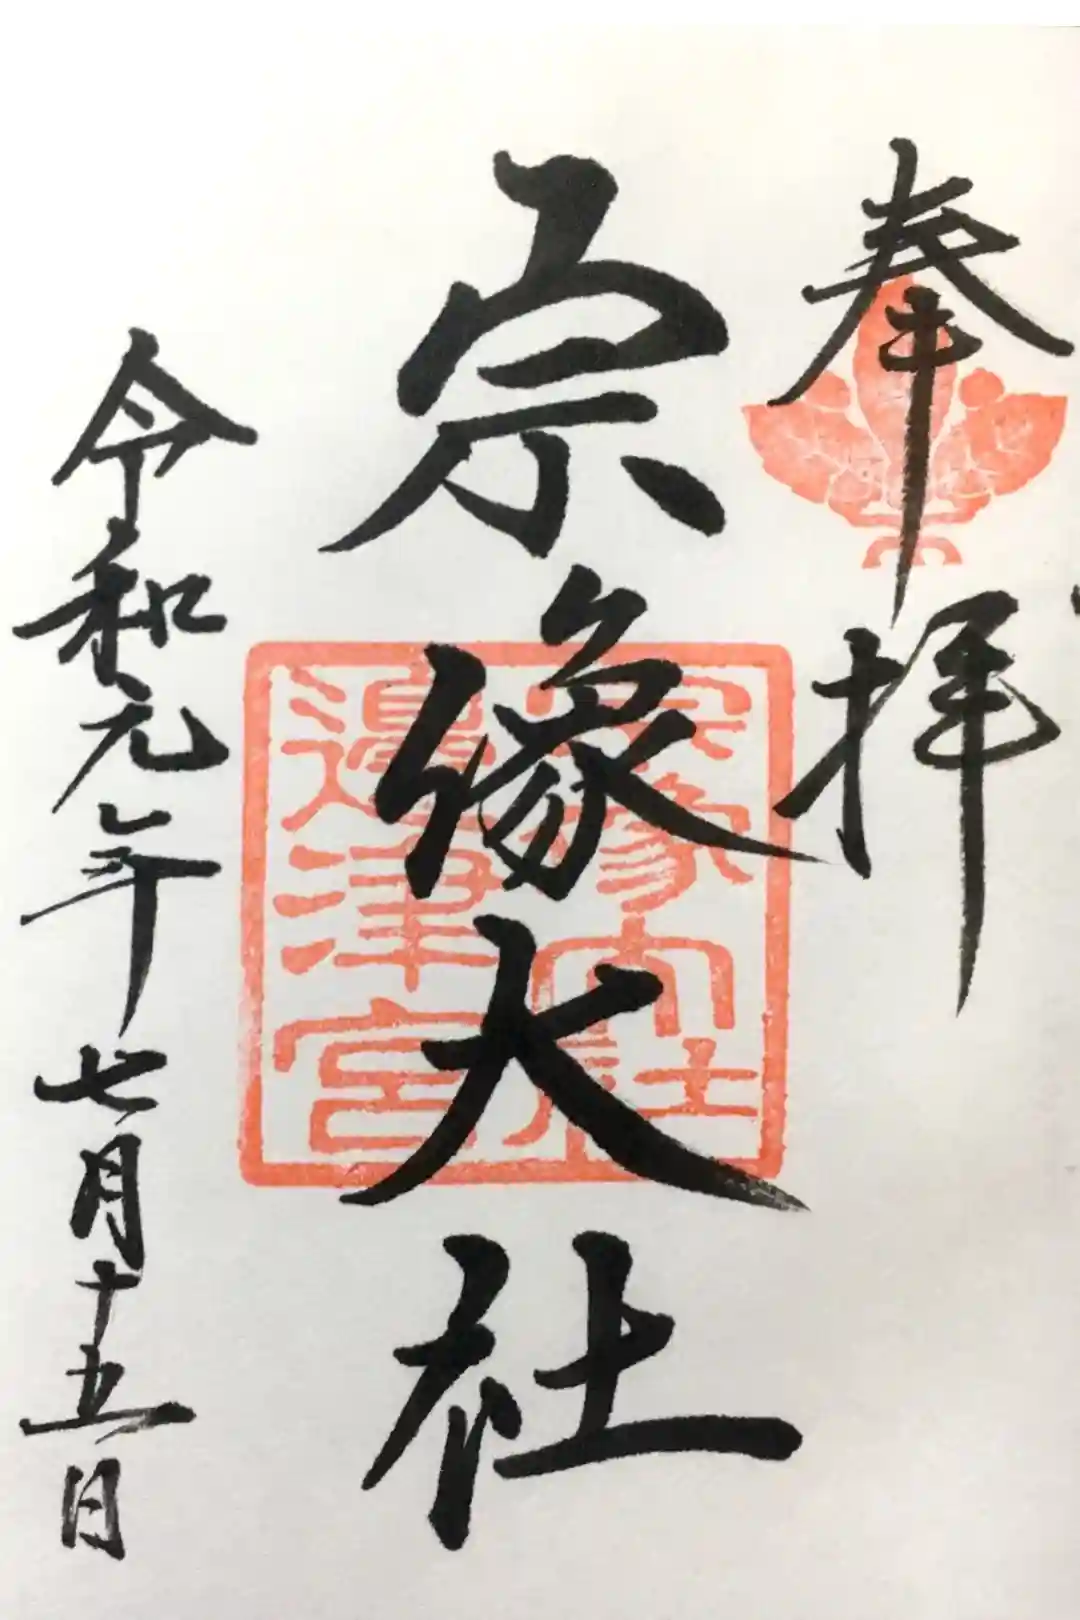 奉拝
宗像大社
宗像大社
邊津宮
令和元年七月十五日